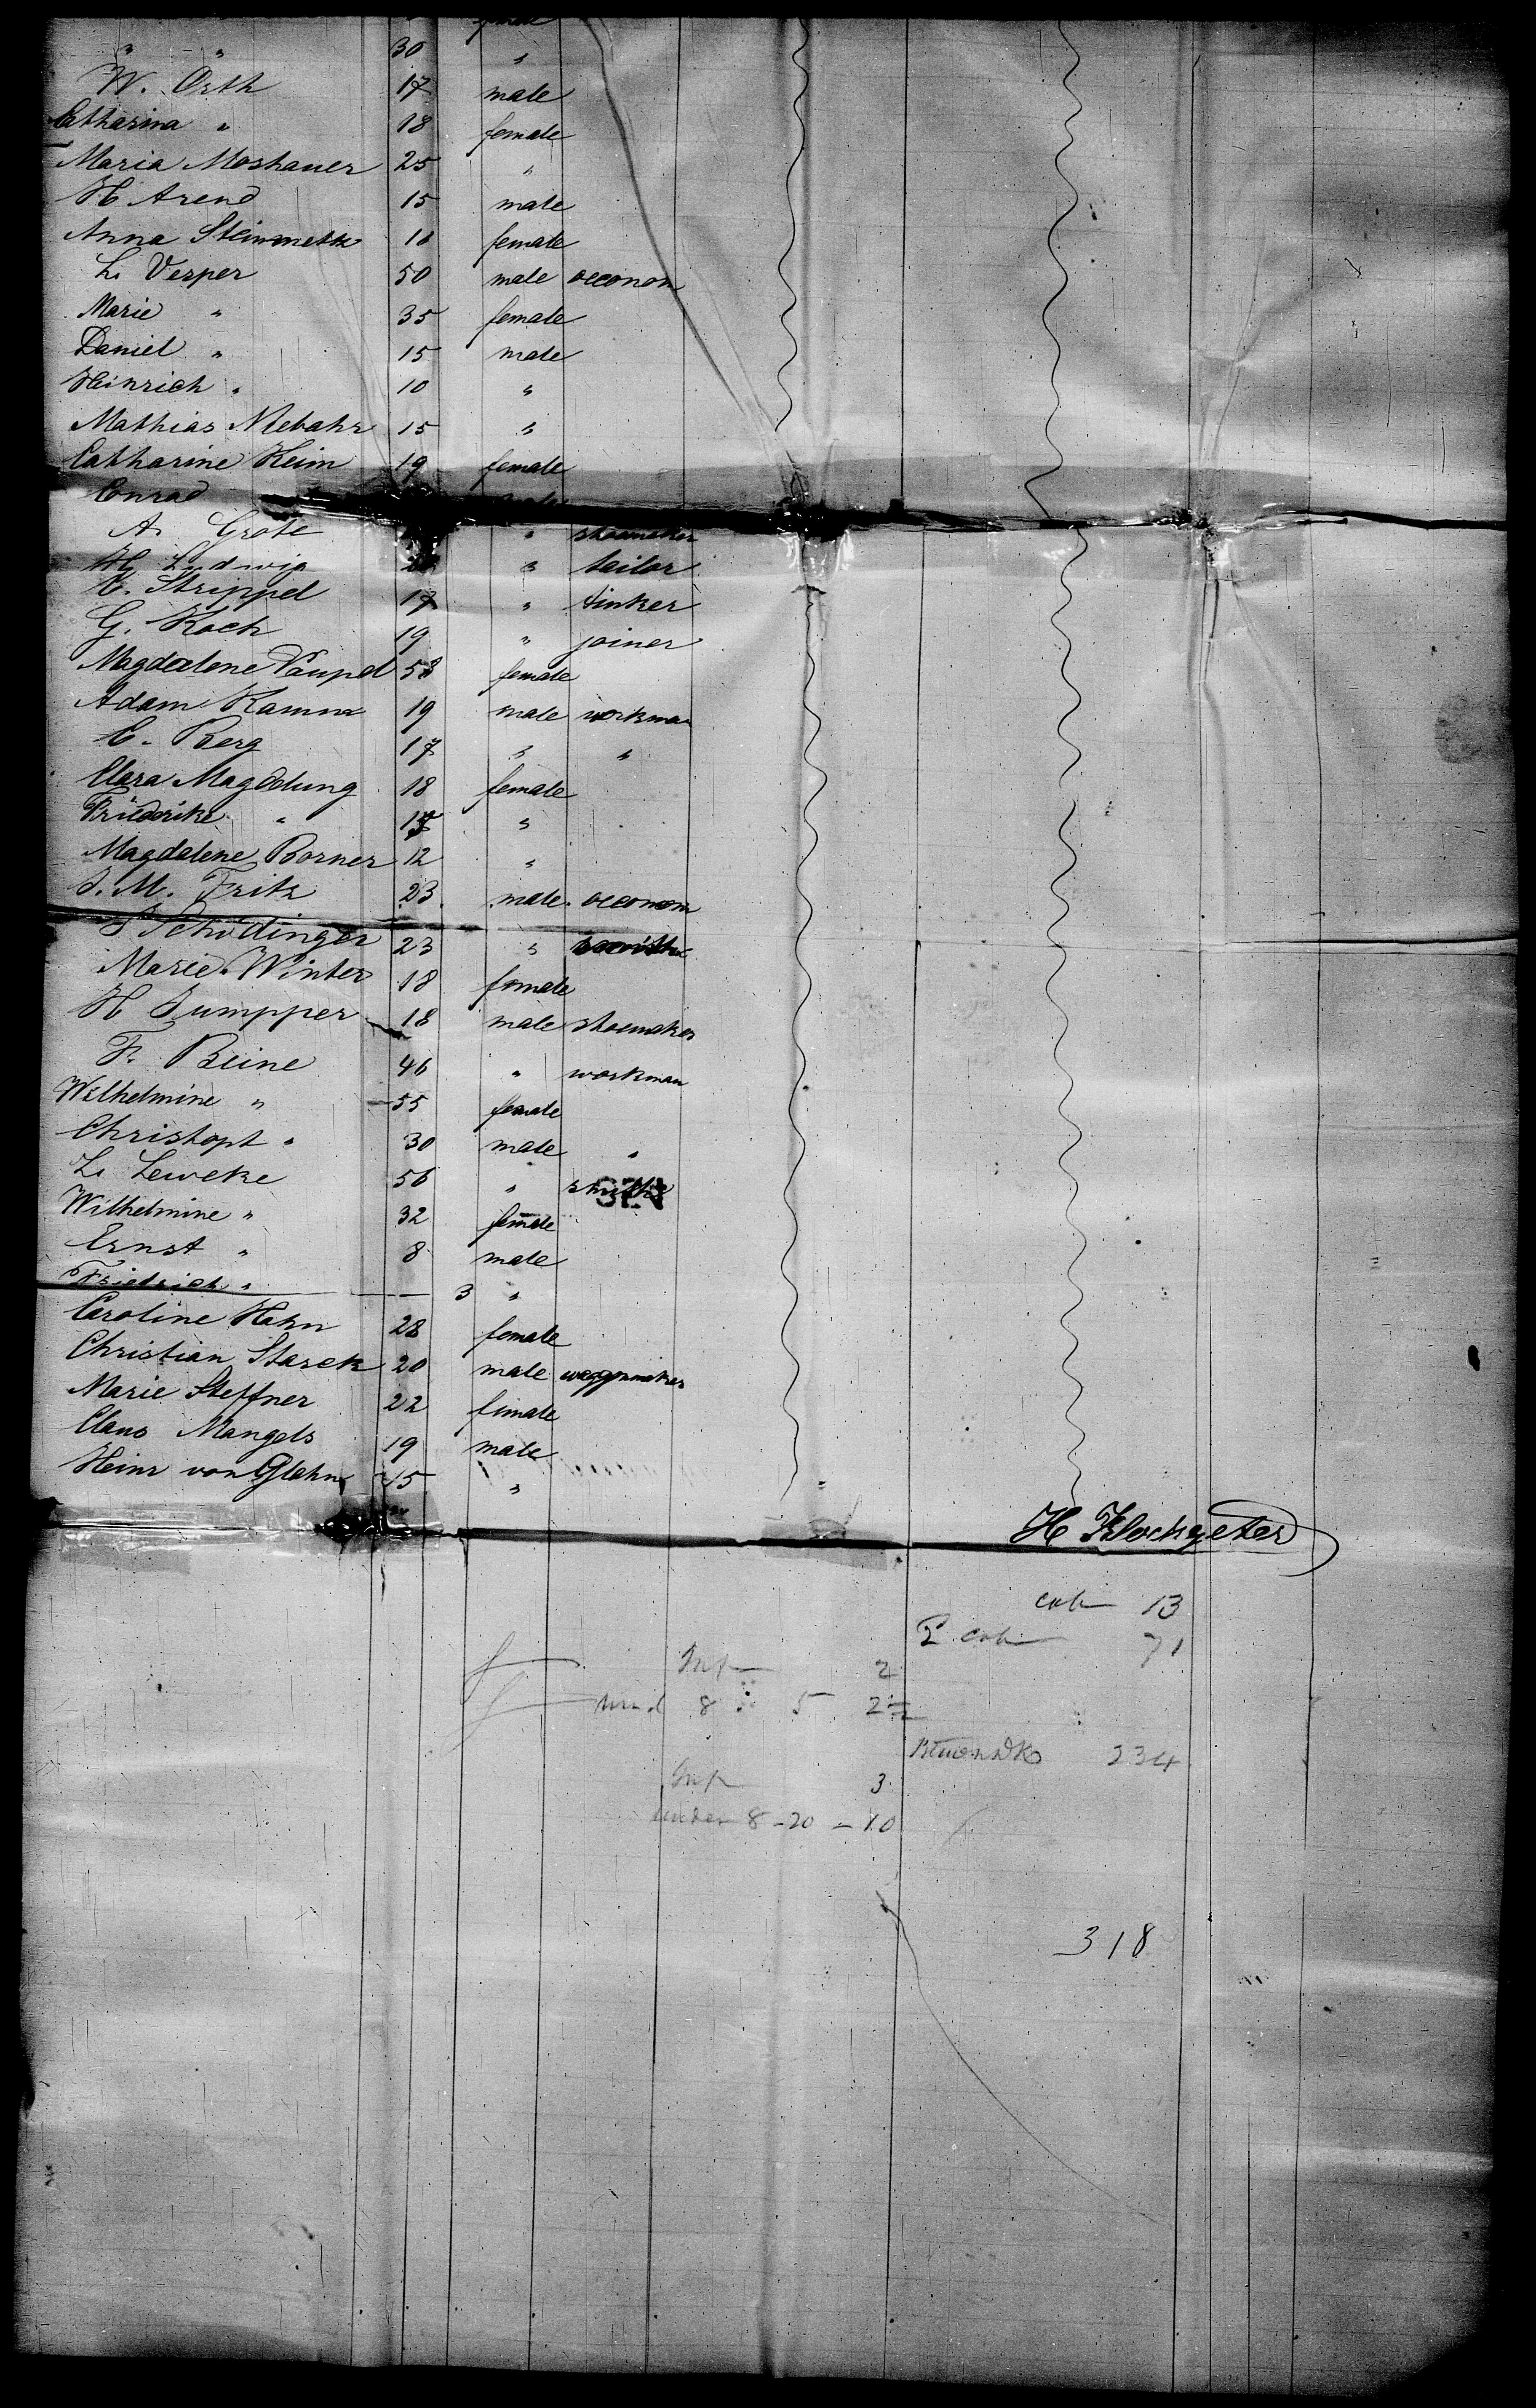 " " 30 "
W. Orth 17 male
Catharina " 18 female
Maria Moshauer 25 "
H Arend 15 male
Anna Steinmetz female
L. Vesper 50 male oeconom
Marie " 35 female
Daniel " 15 male
Heinrich " 10 "
Mathias Nebahr 15 "
Catharine Heim 19 female
Conrad
A. Grote " shoemaker
H. Ludwig " tailor
C. Strippel 17 " tinker
G. Koch 19 " joiner
Magdalene Vaupel 58 female
Adam Kamm 19 male workman
C. Berg 17 " "
Clara Magdelung 18 female
Friederike " "
Magdalene Borner 12 "
J. M. Fritz 23 male oeconom
Schodinger 23 "
Marie Winter 18 female
H Gumpper 18 male shoemaker
F. Beine 46 " workman
Wilhelmine " 55 female
Christoph " 30 male "
L. Leweke 56 "
Wilhelmine " 32 female
Ernst " 8 male
Friedrich " 3 "
Caroline Hahn 28 female
Christian Starck 20 male waggonmaker
Marie Steffner 22 female
Claus Mangels 19 male
Heinr von Glahn 45 "
H Klockgeter
cab 13
2 cab 71
Inf 2
und 8 : 5 2½
234
Inf 3
under 8 - 20 - 10
318